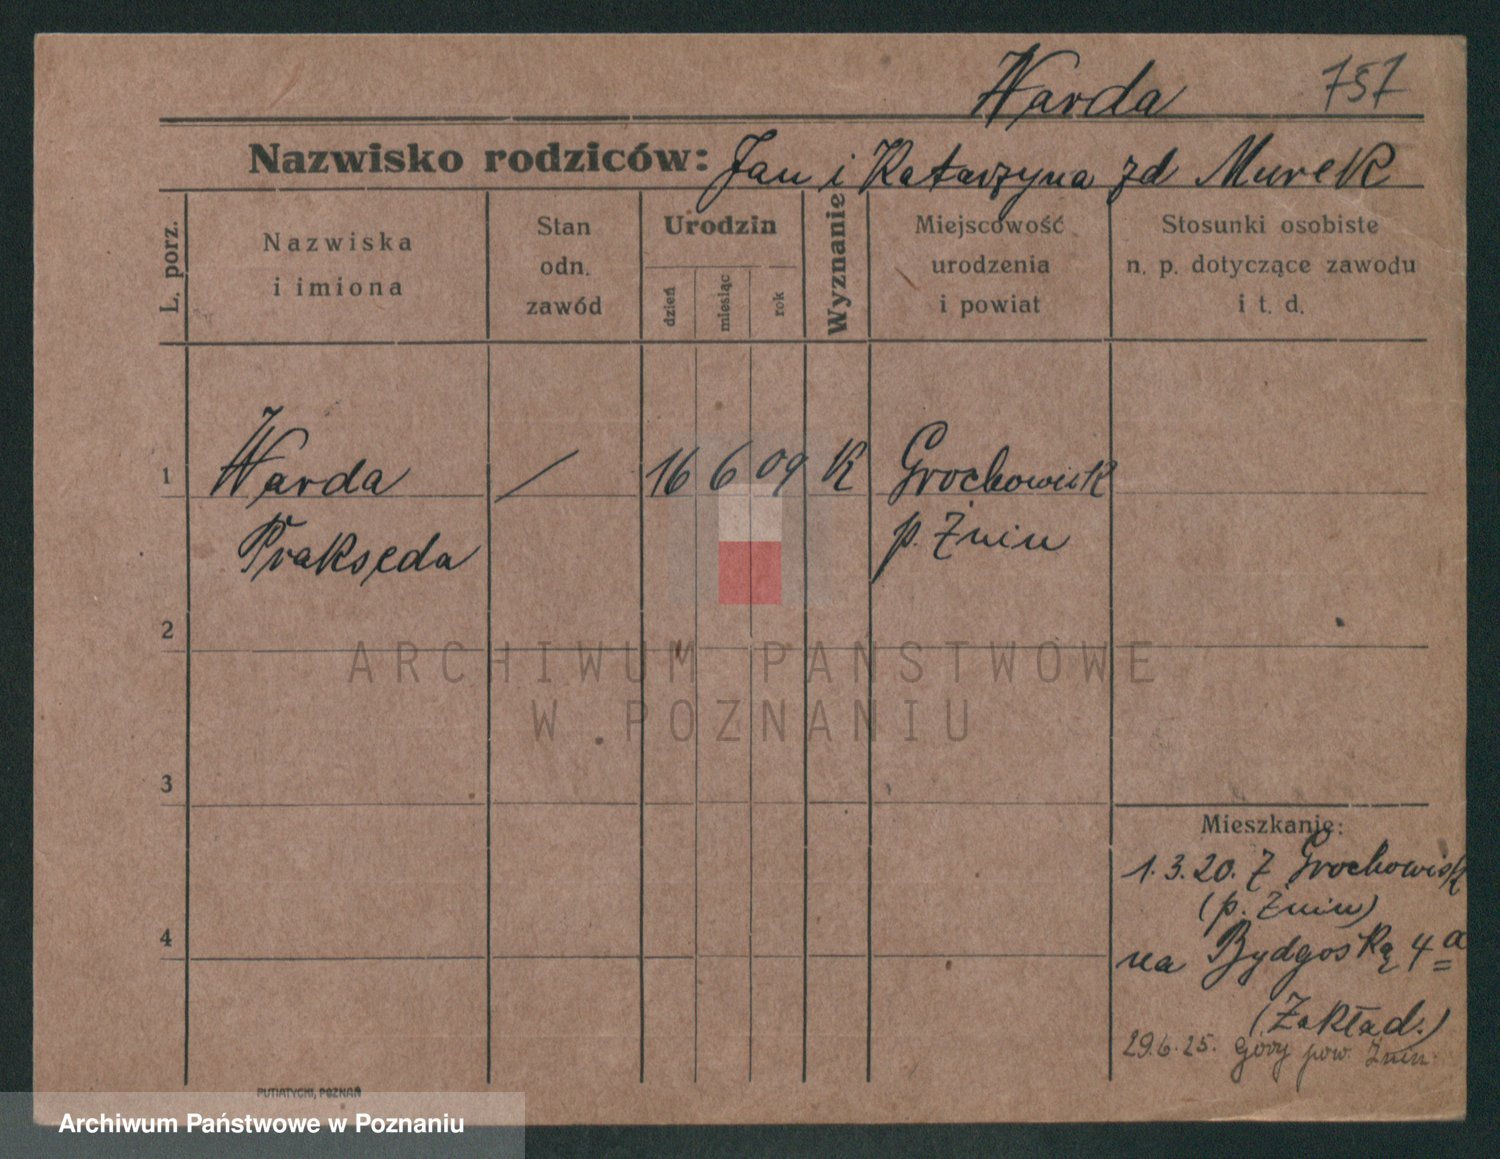 Warda 757
Nazwisko rodziców: Jan i Katarzyna zd Murek
L. porz.
Nazwiska
i imiona
Stan
odn.
zawód
Urodzin
dzień
miesiąc
rok
Wyznanie
Miejscowość
urodzenia
i powiat
Stosunki osobiste
n. p. dotyczące zawodu
i t. d.
1 Warda / 16 6 09 K Grochowisk
Prakseda p. Żnin
2
ARCHIWUM PAŃSTWOWE
W POZNANIU
3
Mieszkanie:
1.3.20. Z Grochowisk
(p. Żnin)
4
na Bydgoską 4a
(Zakład.)
29.6.25. Góry pow. Żnin.
PUTIATYCKI, POZNAŃ
Archiwum Państwowe w Poznaniu